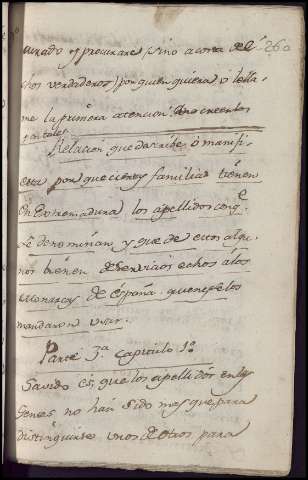 curado y procurare sino acosta de
260
chos verdaderos) por quien quiera o le lla
me la primera atencion. uno cientos
por tales
Relacion que darribe o manifi
esta por que ciertas familias tienen
En Extremadura los apellidos con q.e
Se denominan y que de estos algu
nos bienen de servicios echos a los
Monarcas de España que nesetos
mandaron usar.
Parte 3.a Capitulo 1.o
Savido es, que los apellidos en las
Gentes no han sido mas que para
distinguirse unos de otros para